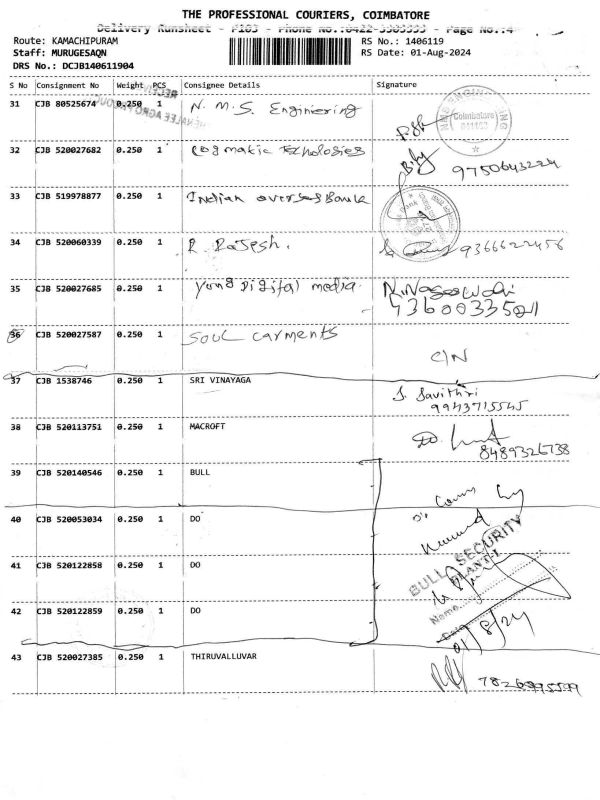 THE PROFESSIONAL COURIERS, COIMBATORE
Delivery Runsheet - P103 - Phone No.:0422-3303333 - Page No.:4
Route: KAMACHIPURAM
RS No.: 1406119
Staff: MURUGESAQN
RS Date: 01-Aug-2024
DRS No.: DCJB140611904
S No Consignment No Weight PCS Consignee Details Signature
31 CJB 80525674 0.250 1 N. M. S. Enginiering
Coimbatore
32 CJB 520027682 0.250 1 Cogmatic Technologies
9750643224
33 CJB 519978877 0.250 1 Indian overses Bank
34 CJB 520060339 0.250 1 R. Rajesh. 9366622456
35 CJB 520027685 0.250 1 Yung Digital media.
36 CJB 520027587 0.250 1 SOUL Carments
C/N
37 CJB 1538746 0.250 1 SRI VINAYAGA
S. Savithri
9943715545
38 CJB 520113751 0.250 1 MACROFT
8489326738
39 CJB 520140546 0.250 1 BULL
40 CJB 520053034 0.250 1 DO
BULL SECURITY
PLANT-I
41 CJB 520122858 0.250 1 DO
42 CJB 520122859 0.250 1 DO
Name
Date
01/8/24
43 CJB 520027385 0.250 1 THIRUVALLUVAR